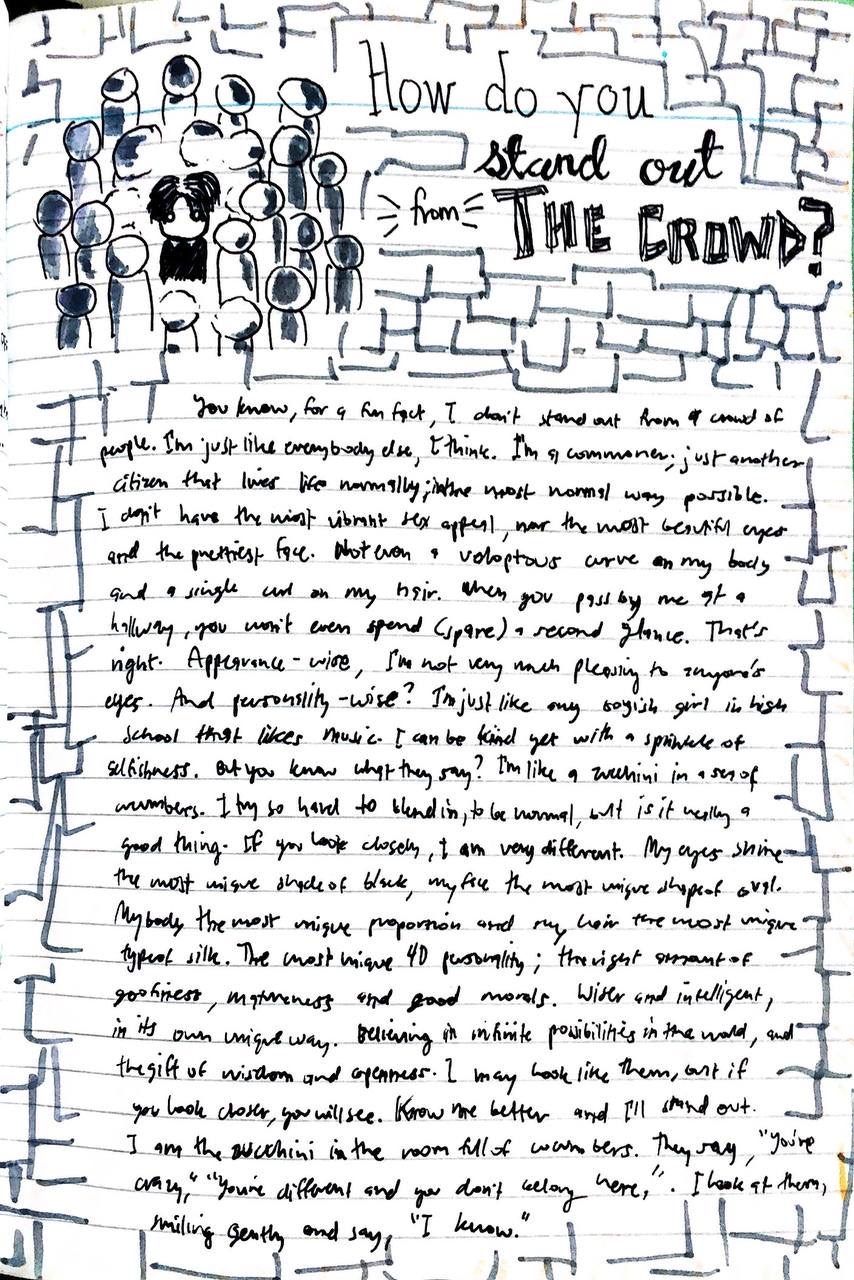 How do you
stand out
from THE CROWD?
You know, for a fun fact, I don't stand out from a crowd of
people. I'm just like everybody else, I think. I'm a commoner; just another
citizen that lives life normally; in the most normal way possible.
I don't have the most vibrant sex appeal, nor the most beautiful eyes
and the prettiest face. Not even a voloptous curve on my body
and a single curl on my hair. When you pass by me at a
hallway, you won't even spend (spare) a second glance. That's
right. Appearance-wise, I'm not very much pleasing to anyone's
eyes. And personality-wise? I'm just like any boyish girl in high
school that likes music. I can be kind yet with a sprinkle of
selfishness. But you know what they say? I'm like a zucchini in a sea of
cucumbers. I try so hard to blend in, to be normal, but is it really a
good thing. If you look closely, I am very different. My eyes shine
the most unique shade of black, my face the most unique shape of oval.
My body the most unique proportion and my hair the most unique
type of silk. The most unique 4D personality; the right amount of
goofiness, matureness and good morals. Wiser and intelligent,
in its own unique way. Believing in infinite posibilities in the world, and
the gift of wisdom and openness. I may look like them, but if
you look closer, you will see. Know me better and I'll stand out.
I am the zucchini in the room full of cucumbers. They say, "You're
crazy," "You're different and you don't belong here,". I look at them,
smiling gently and say, "I know."